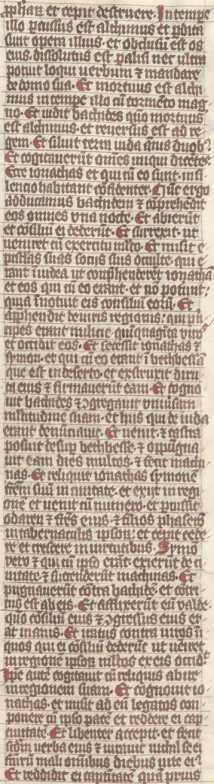 prophetarum et cepit destruere. In tempore
illo percussus est alchimus et pediti
sunt opera illius. et obclusum est os
eius. dissolutus est paralisi nec ultra
potuit loqui verbum et mandare
de domo sua. Et mortuus est alchi
mus in tempore illo cum tormento mag
no. Et vidit bachides quoniam mortuus
est alchimus. et reversus est ad re
gem. Et siluit terra iuda annis duobus.
Et cogitaverunt omnes iniqui dicentes.
Ecce ionathas et qui cum eo sunt. in si
lencio habitant confidenter. Nunc ergo
adducamus bachidem et comprehendet
eos omnes una nocte. Et abierunt
et consilium ei dederunt. Et surrexit. ut
veniret cum exercitu multo. Et misit e
pistolas suas sociis suis occulte. qui e
rant in iudea ut comprehenderent ionathan
et eos qui cum eo erant. et non potuerunt.
quia innotuit eis consilium eorum. Et
apprehendit de viris regionis. qui prin
cipes erant malicie quinquaginta viros
et occidit eos. Et secessit ionathas et
symon. et qui cum eo erant in bethbessen
que est in deserto. et exstruxit diru
ta eius et firmaverunt eam. Et cogno
vit bachides et congregavit universam
multitudinem suam. et hiis qui de iuda
erant denunciavit. Et venit. et castra
posuit desuper bethbesse. et oppugna
vit eam dies multos. et fecit machi
nas. Et reliquit ionathas symonem
fratrem suum in civitate. et exiit in regi
onem et venit cum numero. et percussit
odaren et fratres eius. et filios phaseron
in tabernaculis ipsorum. et cepit cede
re et crescere in virtutibus. Symon
vero et qui cum ipso erant. exierunt de ci
vitate. et succenderunt machinas. Et
pugnaverunt contra bachidem. et contri
tus est ab eis. Et afflixerunt eum valde.
quoniam consilium eius et congressus eius er
at inanis. Et iratus contra viros ini
quos qui ei consilium dederant ut veniret
in regionem ipsorum multos ex eis occidit.
Ipse autem cogitavit cum reliquis abire
in regionem suam. Et cognovit io
nathas. et misit ad eum legatos com
ponere cum ipso pacem et reddere ei cap
tivitatem. Et libenter accepit. et fecit
secundum verba eius et iuravit nichil se ei
facturum mali omnibus diebus vite eius.
Et reddidit ei captivitatem quam prius